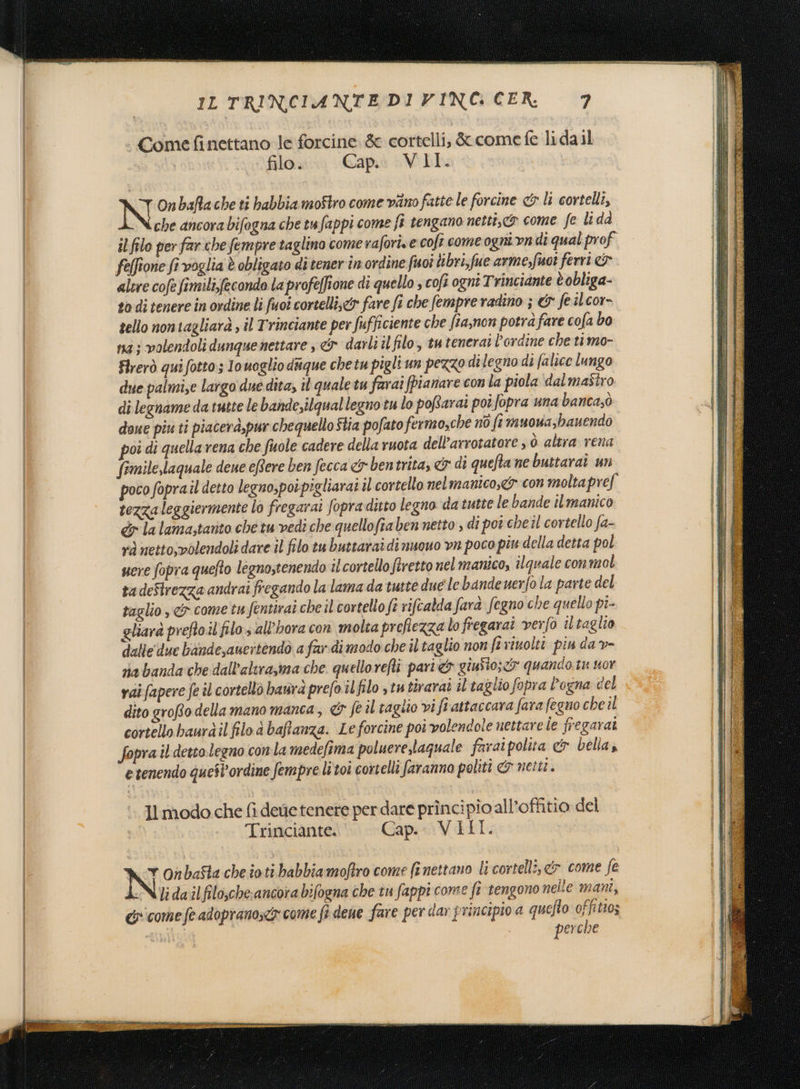 IL TRINCIANTE DI VINC. CER. 7
Come si nettano le forcine & cortelli, & come se li da il
filo. Cap. VII.
NOn basta che ti habbia mostro come vano fatte le forcine & li cortelli,
che ancora bisogna che tu sappi come si tengano netti, & come se li dà
il filo per far che sempre taglino come rasori. e cosi come ogni vn di qual prof
fessione si voglia è obligato di tener in ordine suoi libri, sue arme, suoi ferri &
altre cose simili, secondo la professione di quello, cosi ogni Trinciante è obliga-
to di tenere in ordine li suoi cortelli, & fare si che sempre radino; & se il cor-
tello non tagliarà, il Trinciante per sufficiente che sia, non potrà fare cosa bo
na; volendoli dunque nettare, & darli il filo, tu tenerai l'ordine che ti mo-
strerò qui sotto; Io uoglio dũque che tu pigli un pezzo di legno di salice lungo
due palmi, e largo due dita, il quale tu farai spianare con la piola dal mastro
di legname da tutte le bande, ilqual legno tu lo posarai poi sopra una banca, ò
doue piu ti piacerà, pur che quello stia posato fermo, che nõ si muoua, hauendo
poi di quella rena che suole cadere della ruota dell'arrotatore, ò altra rena
simile, laquale deue essere ben secca & ben trita, & di questa ne buttarai un
poco sopra il detto legno, poi pigliarai il cortello nel manico, & con molta pres
tezza leggiermente lo fregarai sopra ditto legno da tutte le bande il manico
& la lama, tanto che tu vedi che quello sia ben netto, di poi che il cortello sa-
rà netto, volendoli dare il filo tu buttarai di nuouo vn poco piu della detta pol
uere sopra questo legno, tenendo il cortello stretto nel manico, ilquale con mol
ta destrezza andrai fregando la lama da tutte due le bande uerso la parte del
taglio, & come tu sentirai che il cortello si riscalda sarà segno che quello pi-
gliarà presto il filo, all'hora con molta prestezza lo fregarai verso il taglio
dalle due bande, auertendo a far di modo che il taglio non si riuolti piu da v-
na banda che dall'altra, ma che quello resti pari & giusto; & quando tu uor
rai sapere se il cortello haurà preso il filo, tu tirarai il taglio sopra l'ogna del
dito grosso della mano manca, & se il taglio vi si attaccara sara segno che il
cortello haurà il filo à bastanza. Le forcine poi volendole nettare le fregarai
sopra il detto legno con la medesima poluere, laquale farai polita & bella,
e tenendo quest'ordine sempre li toi cortelli saranno politi & netti.
Il modo che si deue tenere per dare principio all'offitio del
Trinciante. Cap. VIII.
NOn basta che io ti habbia mostro come si nettano li cortelli, & come se
li da il filo, che ancora bisogna che tu sappi come si tengono nelle mani,
& come se adoprano, & come si deue fare per dar principio a questo offitio;
perche